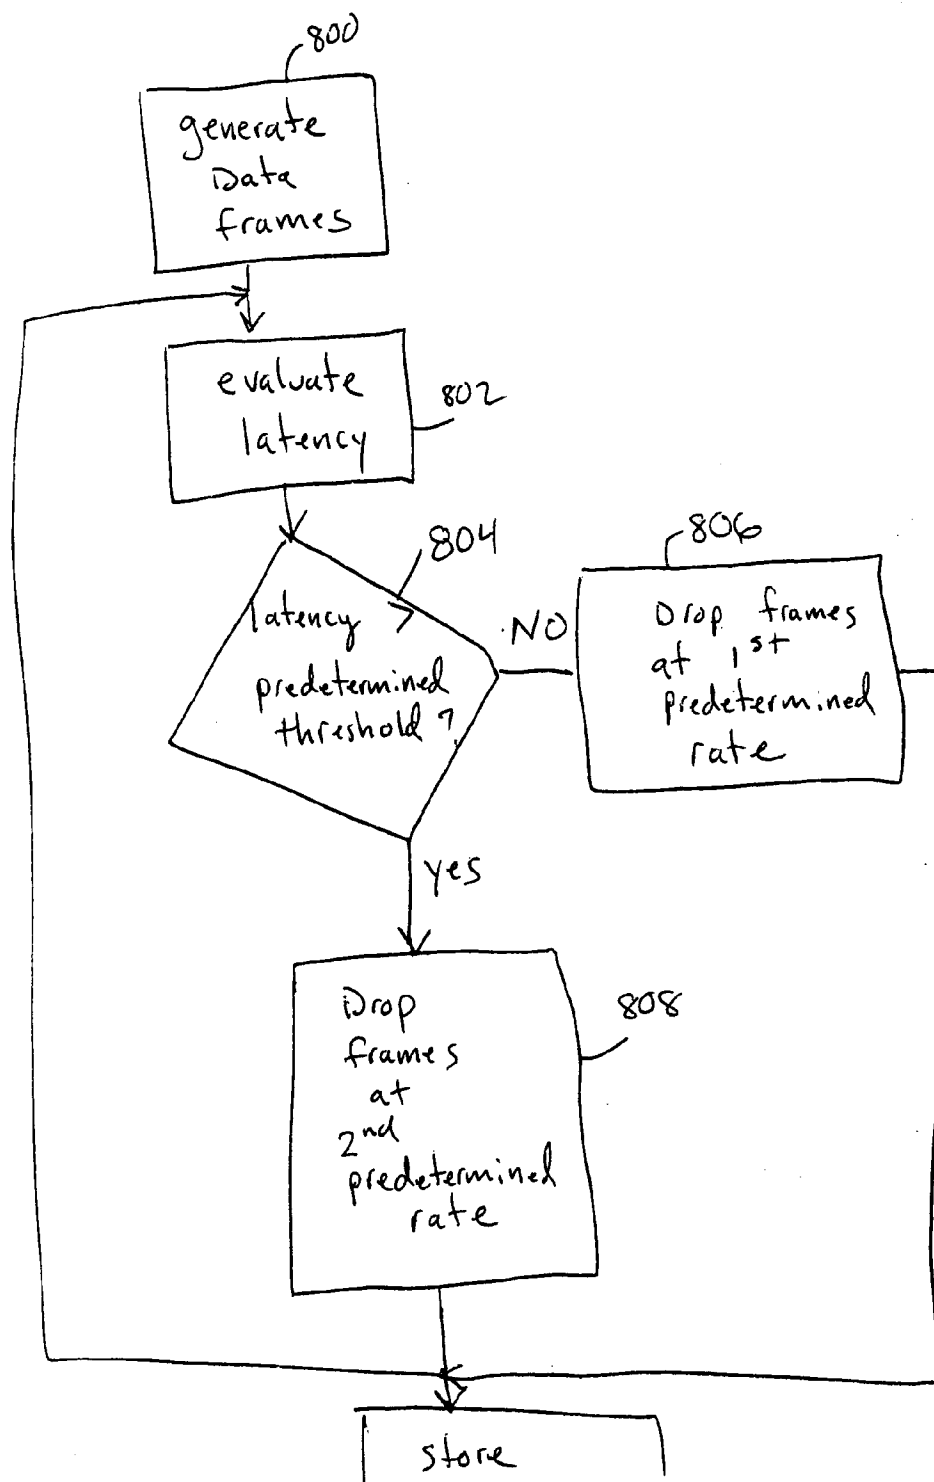 800
generate
Data
frames
evaluate
latency
802
804
latency >
predetermined
threshold?
NO
806
Drop frames
at 1st
predetermined
rate
yes
Drop
frames
at
2nd
predetermined
rate
808
store